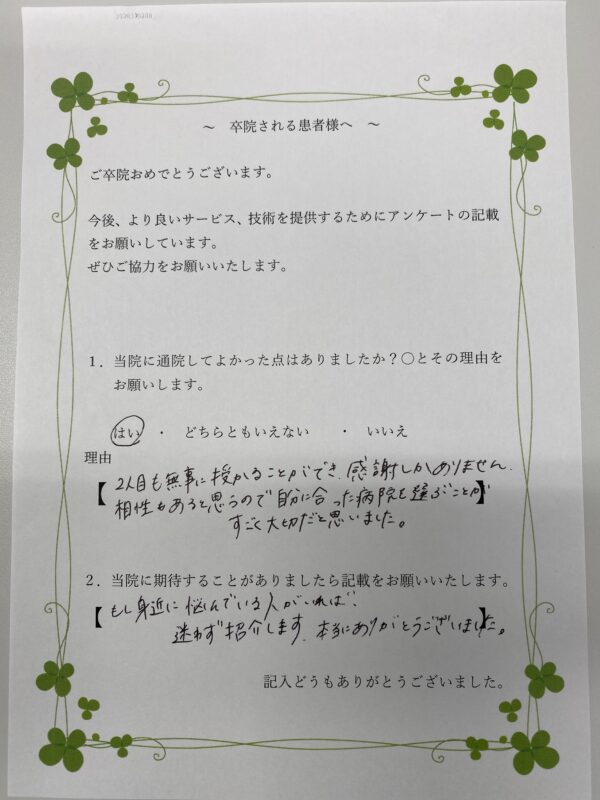 ～ 卒院される患者様へ ～
ご卒院おめでとうございます。
今後、より良いサービス、技術を提供するためにアンケートの記載
をお願いしています。
ぜひご協力をお願いいたします。
１．当院に通院してよかった点はありましたか？〇とその理由を
お願いします。
はい ・ どちらともいえない ・ いいえ
理由
【2人目も無事に授かることができ、感謝しかありません。
相性もあると思うので自分に合った病院を選ぶことが】
すごく大切だと思いました。
２．当院に期待することがありましたら記載をお願いいたします。
【もし身近に悩んでいる人がいれば、
迷わず紹介します。本当にありがとうございました。】
記入どうもありがとうございました。